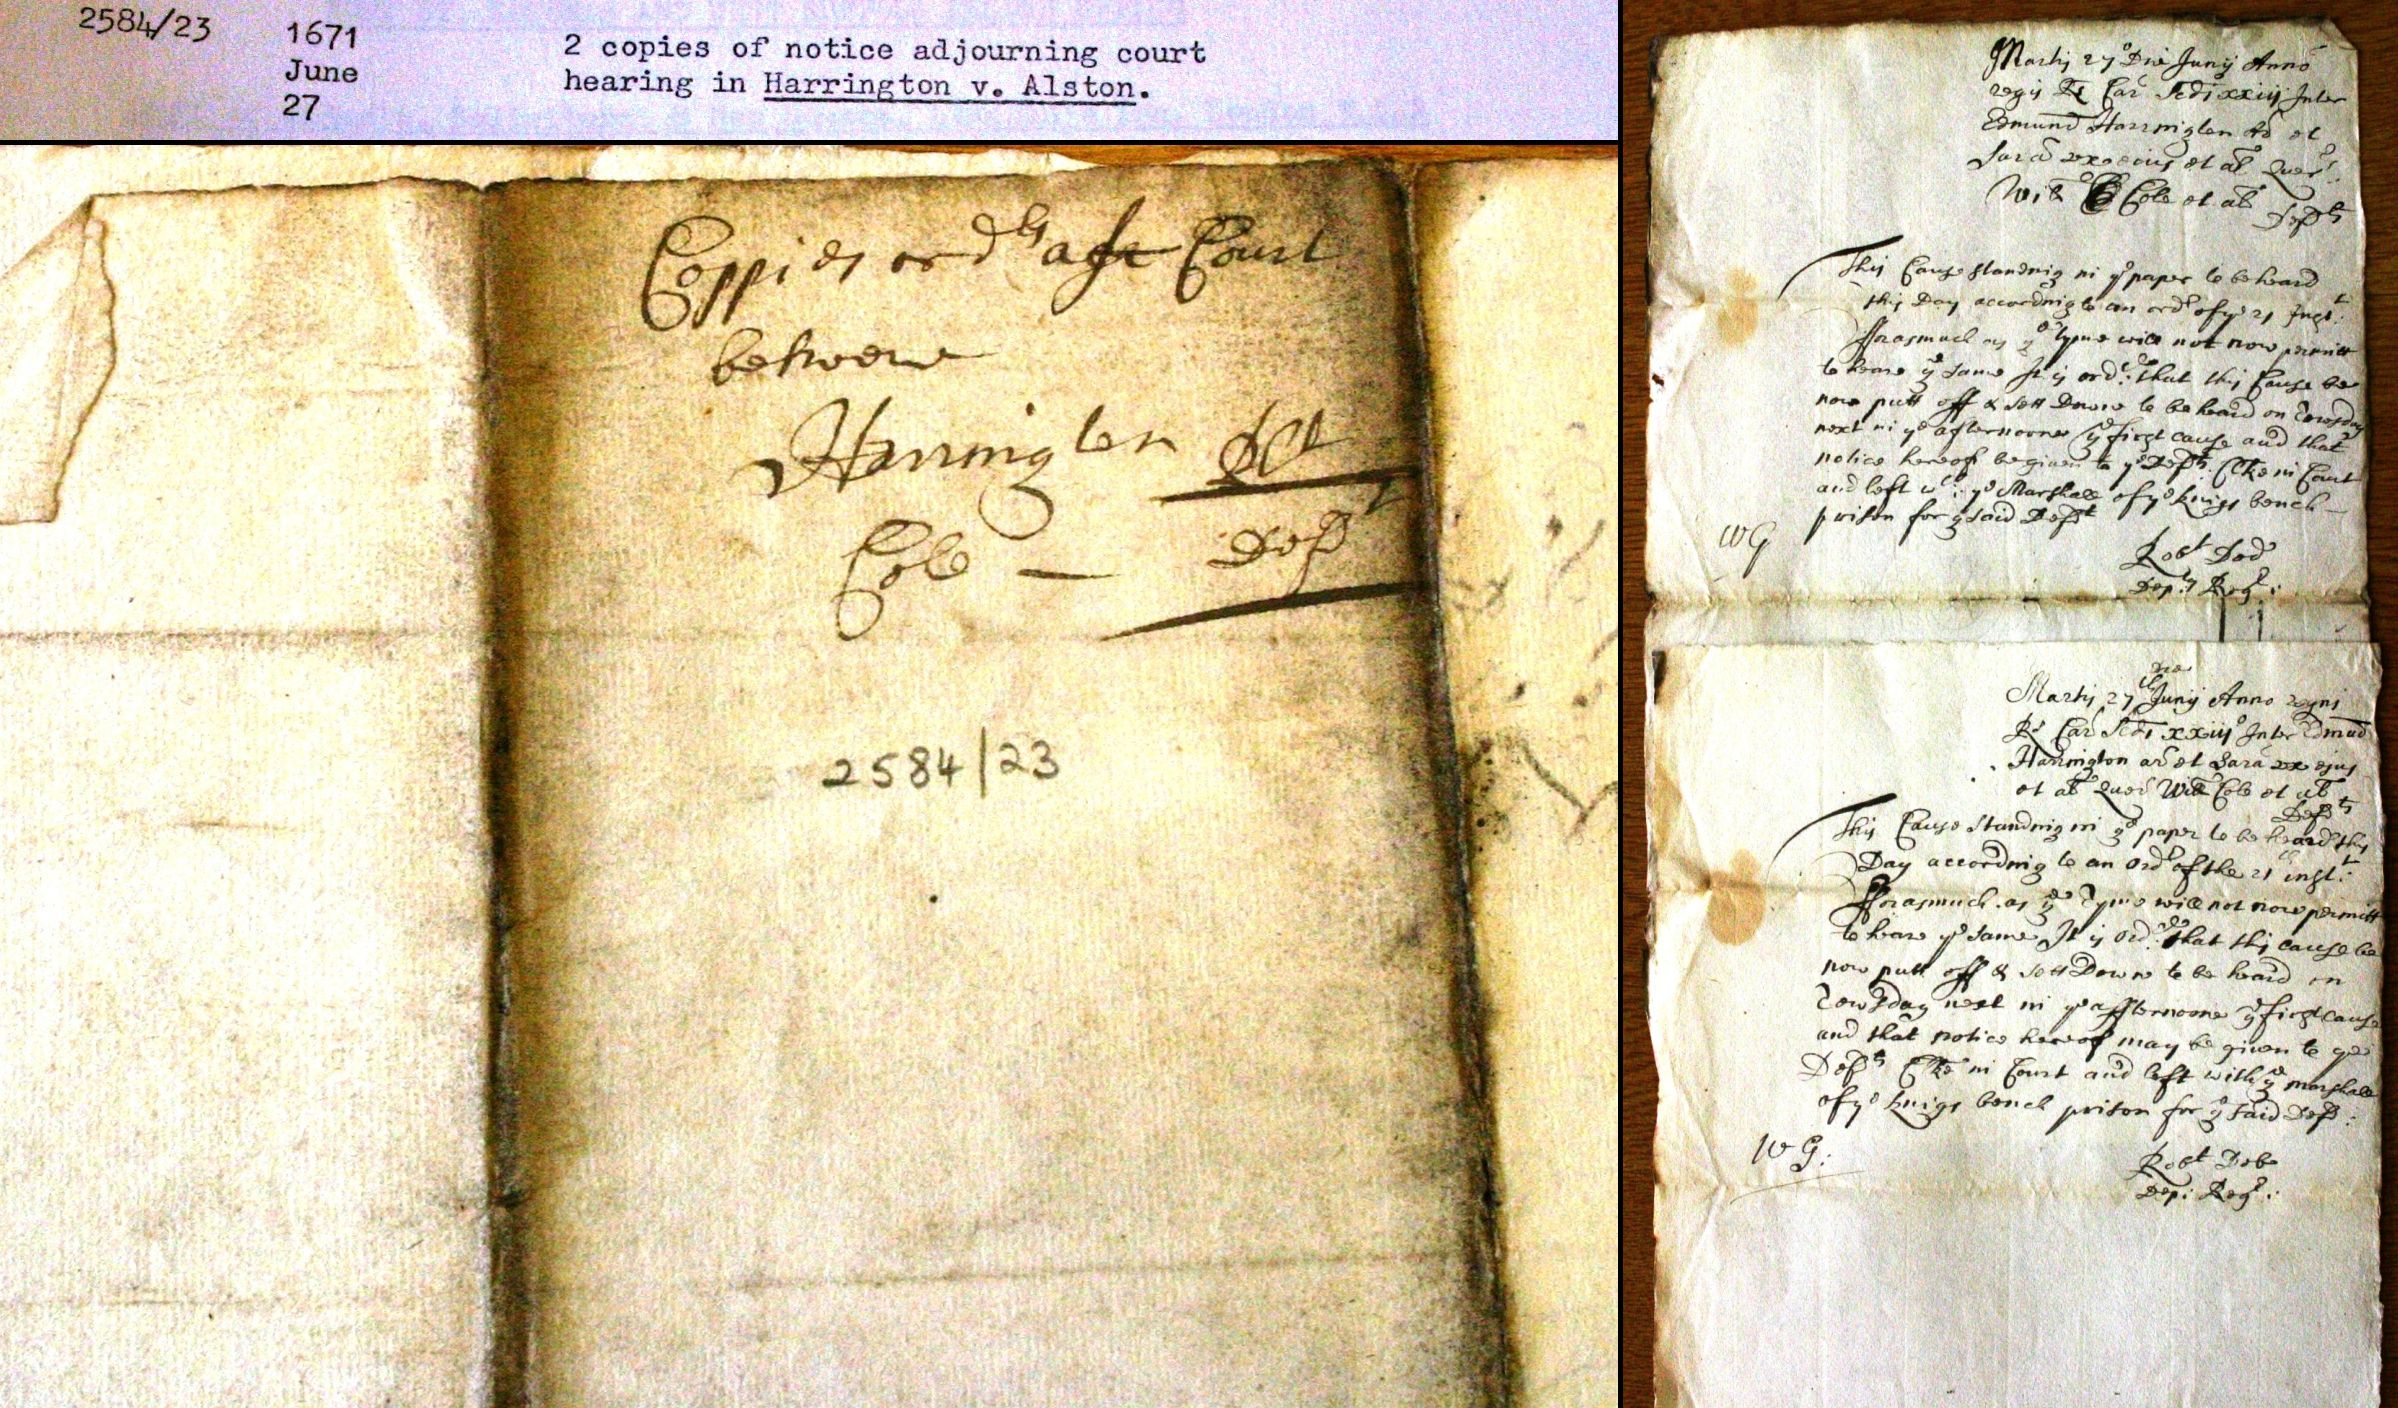 2584/23
1671
June
27
2 copies of notice adjourning court
hearing in Harrington v. Alston.
Coppies ord Court
betweene
Harrington
Cole — Deft
2584/23
Martij 27 Die Junij Anno
regis Rs Car Scdi xxiij Inter
Edmund Harrington Ar et
Sara uxor eius et al Quer
Will Cole et al Defts
This Cause standing in ye paper to be heard
this Day according to an ordr of ye 21 Inst:
fforasmuch as ye tyme will not now permitt
to heare ye same It is ordred: that this Cause be
now putt off & sett Downe to be heard on Tewsday
next in ye afternoone ye first cause and that
notice hereof be given to ye Defts Clke in Court
and left wth: ye Marshall of ye kings bench
prison for ye said Deft
WG
Robt Dod
Depty Regr:
die
Martij 27th Junij Anno regni
Rs Car Scdi xxiij Inter Edmud
Harrington ar et Sara ux ejus
et al Quer Will Cole et al
Defts
This Cause standing in ye paper to be heard this
Day according to an Ordr of the 21 inst:
fforasmuch as ye Tyme will not now permitt
to heare ye same It is Ordred: that this cause be
now putt off & sett Downe to be heard on
Tewsday next in ye affternoone ye first cause
and that notice hereof may be given to ye
Defts Clke in Court and left with ye marshall
of ye kings bench prison for ye said Deft:
WG:
Robt Dob
Dep: Regr: